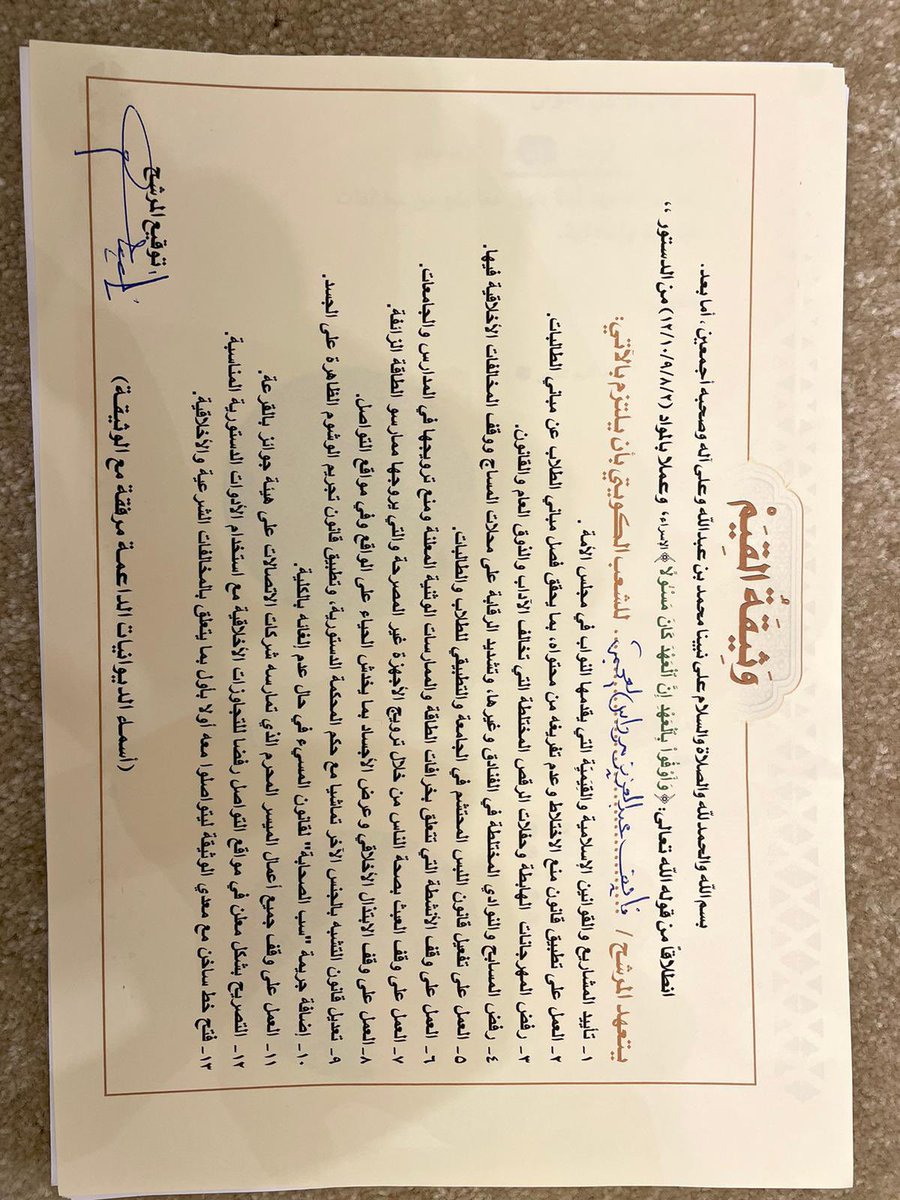 وَثِيقَةُ القِيَمْ
بسم الله والحمد لله والصلاة والسلام على نبينا محمد بن عبدالله وعلى آله وصحبه أجمعين، أما بعد.
انطلاقاً من قوله لله تعالى: ﴿وَأَوْفُوا۟ بِٱلْعَهْدِ إِنَّ ٱلْعَهْدَ كَانَ مَسْـُٔولًا﴾ الإسراء، وعملا بالمواد (١٢/١٠/٩/٨/٢) من الدستور ،،
يتعهد المرشح / نايف عبدالعزيز العجمي. للشعب الكويتي بأن يلتزم بالآتي:
١- تأييد المشاريع والقوانين الإسلامية والقيمية التي يقدمها النواب في مجلس الأمة.
٢- العمل على تطبيق قانون منع الاختلاط وعدم تفريغه من محتواه، بما يحقق فصل مباني الطلاب عن مباني الطالبات.
٣- رفض المهرجانات الهابطة وحفلات الرقص المختلطة التي تخالف الآداب والذوق العام والقانون.
٤- رفض المسابح والنوادي المختلطة في الفنادق وغيرها، وتشديد الرقابة على محلات المساج ووقف المخالفات الأخلاقية فيها.
٥- العمل على تفعيل قانون اللبس المحتشم في الجامعة والتطبيقي للطلاب والطالبات.
٦- العمل على وقف الأنشطة التي تتعلق بخرافات الطاقة والممارسات الوثنية المعلنة ومنع ترويجها في المدارس والجامعات.
٧- العمل على وقف العبث بصحة الناس من خلال ترويج الأجهزة غير المصرحة والتي يروجها ممارسو الطاقة الزائفة.
٨- العمل على وقف الابتذال الأخلاقي وعرض الأجساد بما يخدش الحياء على الواقع وفي مواقع التواصل.
٩- تعديل قانون التشبه بالجنس الآخر تماشيا مع حكم المحكمة الدستورية، وتطبيق قانون تجريم الوشوم الظاهرة على الجسد.
١٠- إضافة جريمة "سب الصحابة" لقانون المسيء في حال عدم إلغائه بالكلية.
١١- العمل على وقف جميع أعمال الميسر المحرم الذي تمارسه شركات الاتصالات على هيئة جوائز بالقرعة.
١٢- التصريح بشكل معلن في مواقع التواصل رفضا للتجاوزات الأخلاقية مع استخدام الأدوات الدستورية المناسبة.
١٣- فتح خط ساخن مع معدي الوثيقة ليتواصلوا معه أولا بأول بما يتعلق بالمخالفات الشرعية والأخلاقية.
(أسماء الديوانيات الداعمة مرفقة مع الوثيقة)
توقيع المرشح